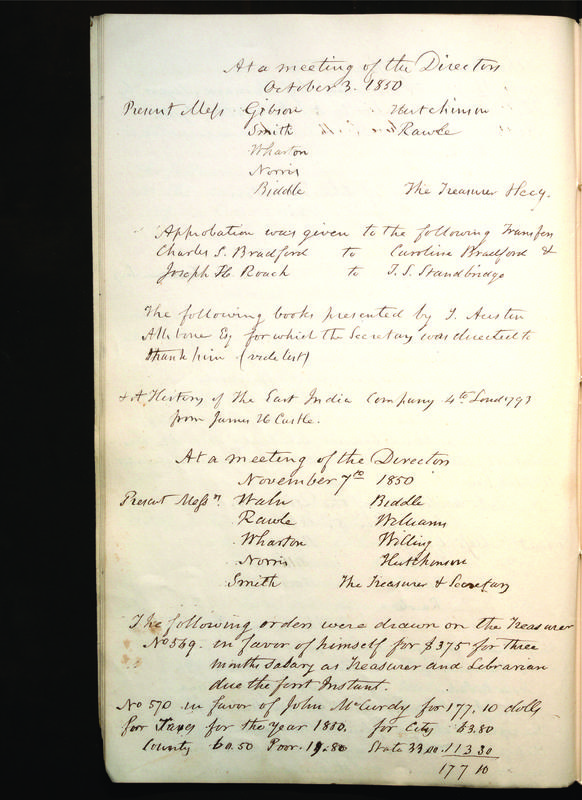 At a meeting of the Directors
October 3. 1850
Present Mess Gibson Hutchinson
Smith Rawle
Wharton
Norris
Biddle The Treasurer & Secy.
Approbation was given to the following Transfers
Charles S. Bradford to Caroline Bradford &
Joseph H. Roach to J. S. Standbridge
The following books presented by J. Austin
Allibone Esq for which the Secretary was directed to
thank him (vide list)
& A History of the East India Company 4to Lond 1793
from James H Castle.
At a meeting of the Directors
November 7th 1850
Present Messrs. Waln Biddle
Rawle Williams
Wharton Willing
Norris Hutchinson
Smith The Treasurer & Secretary
The following orders were drawn on the Treasurer
No 569. in favor of himself for $375 for three
months salary as Treasurer and Librarian
due the first Instant.
No 570 in favor of John McCurdy for 177.10 dolls
for Taxes for the Year 1850. for City 
County 60.50 Poor. State 113 30
177 10